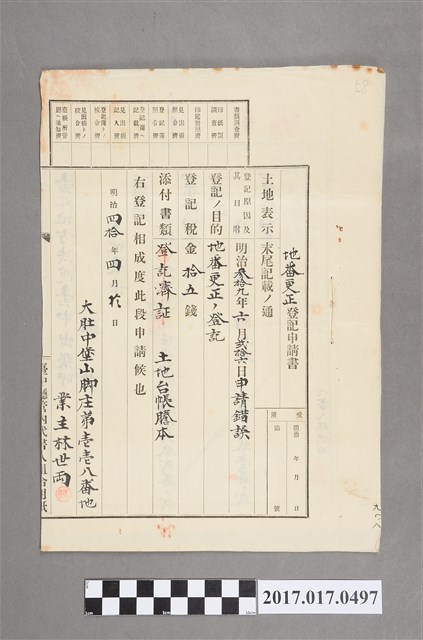 地番更正登記申請書
受附
明治 年 月 日
第 號
土地表示 末尾記載ノ通
登記原因及其日附 明治参拾九年六月弐拾六日申請錯誤
登記ノ目的 地番更正ノ登記
登記税金 拾五錢
添付書類 登記濟証 土地台帳謄本
右登記相成度此段申請候也
明治四拾年四月 日
大肚中堡山脚庄第壱壱八番地
業主 林世両
書類調査濟
登記簿ヘ記載濟
2017.017.0497